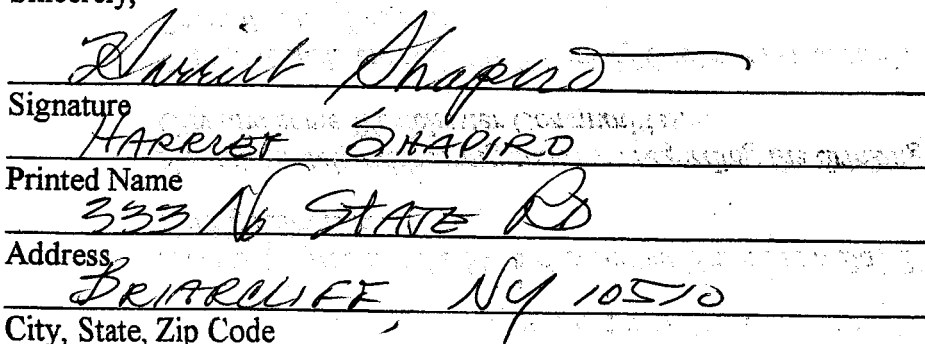 Sincerely,
Harriet Shapiro
Signature
HARRIET SHAPIRO
Printed Name
333 No STATE RD
Address
BRIARCLIFF, NY 10510
City, State, Zip Code